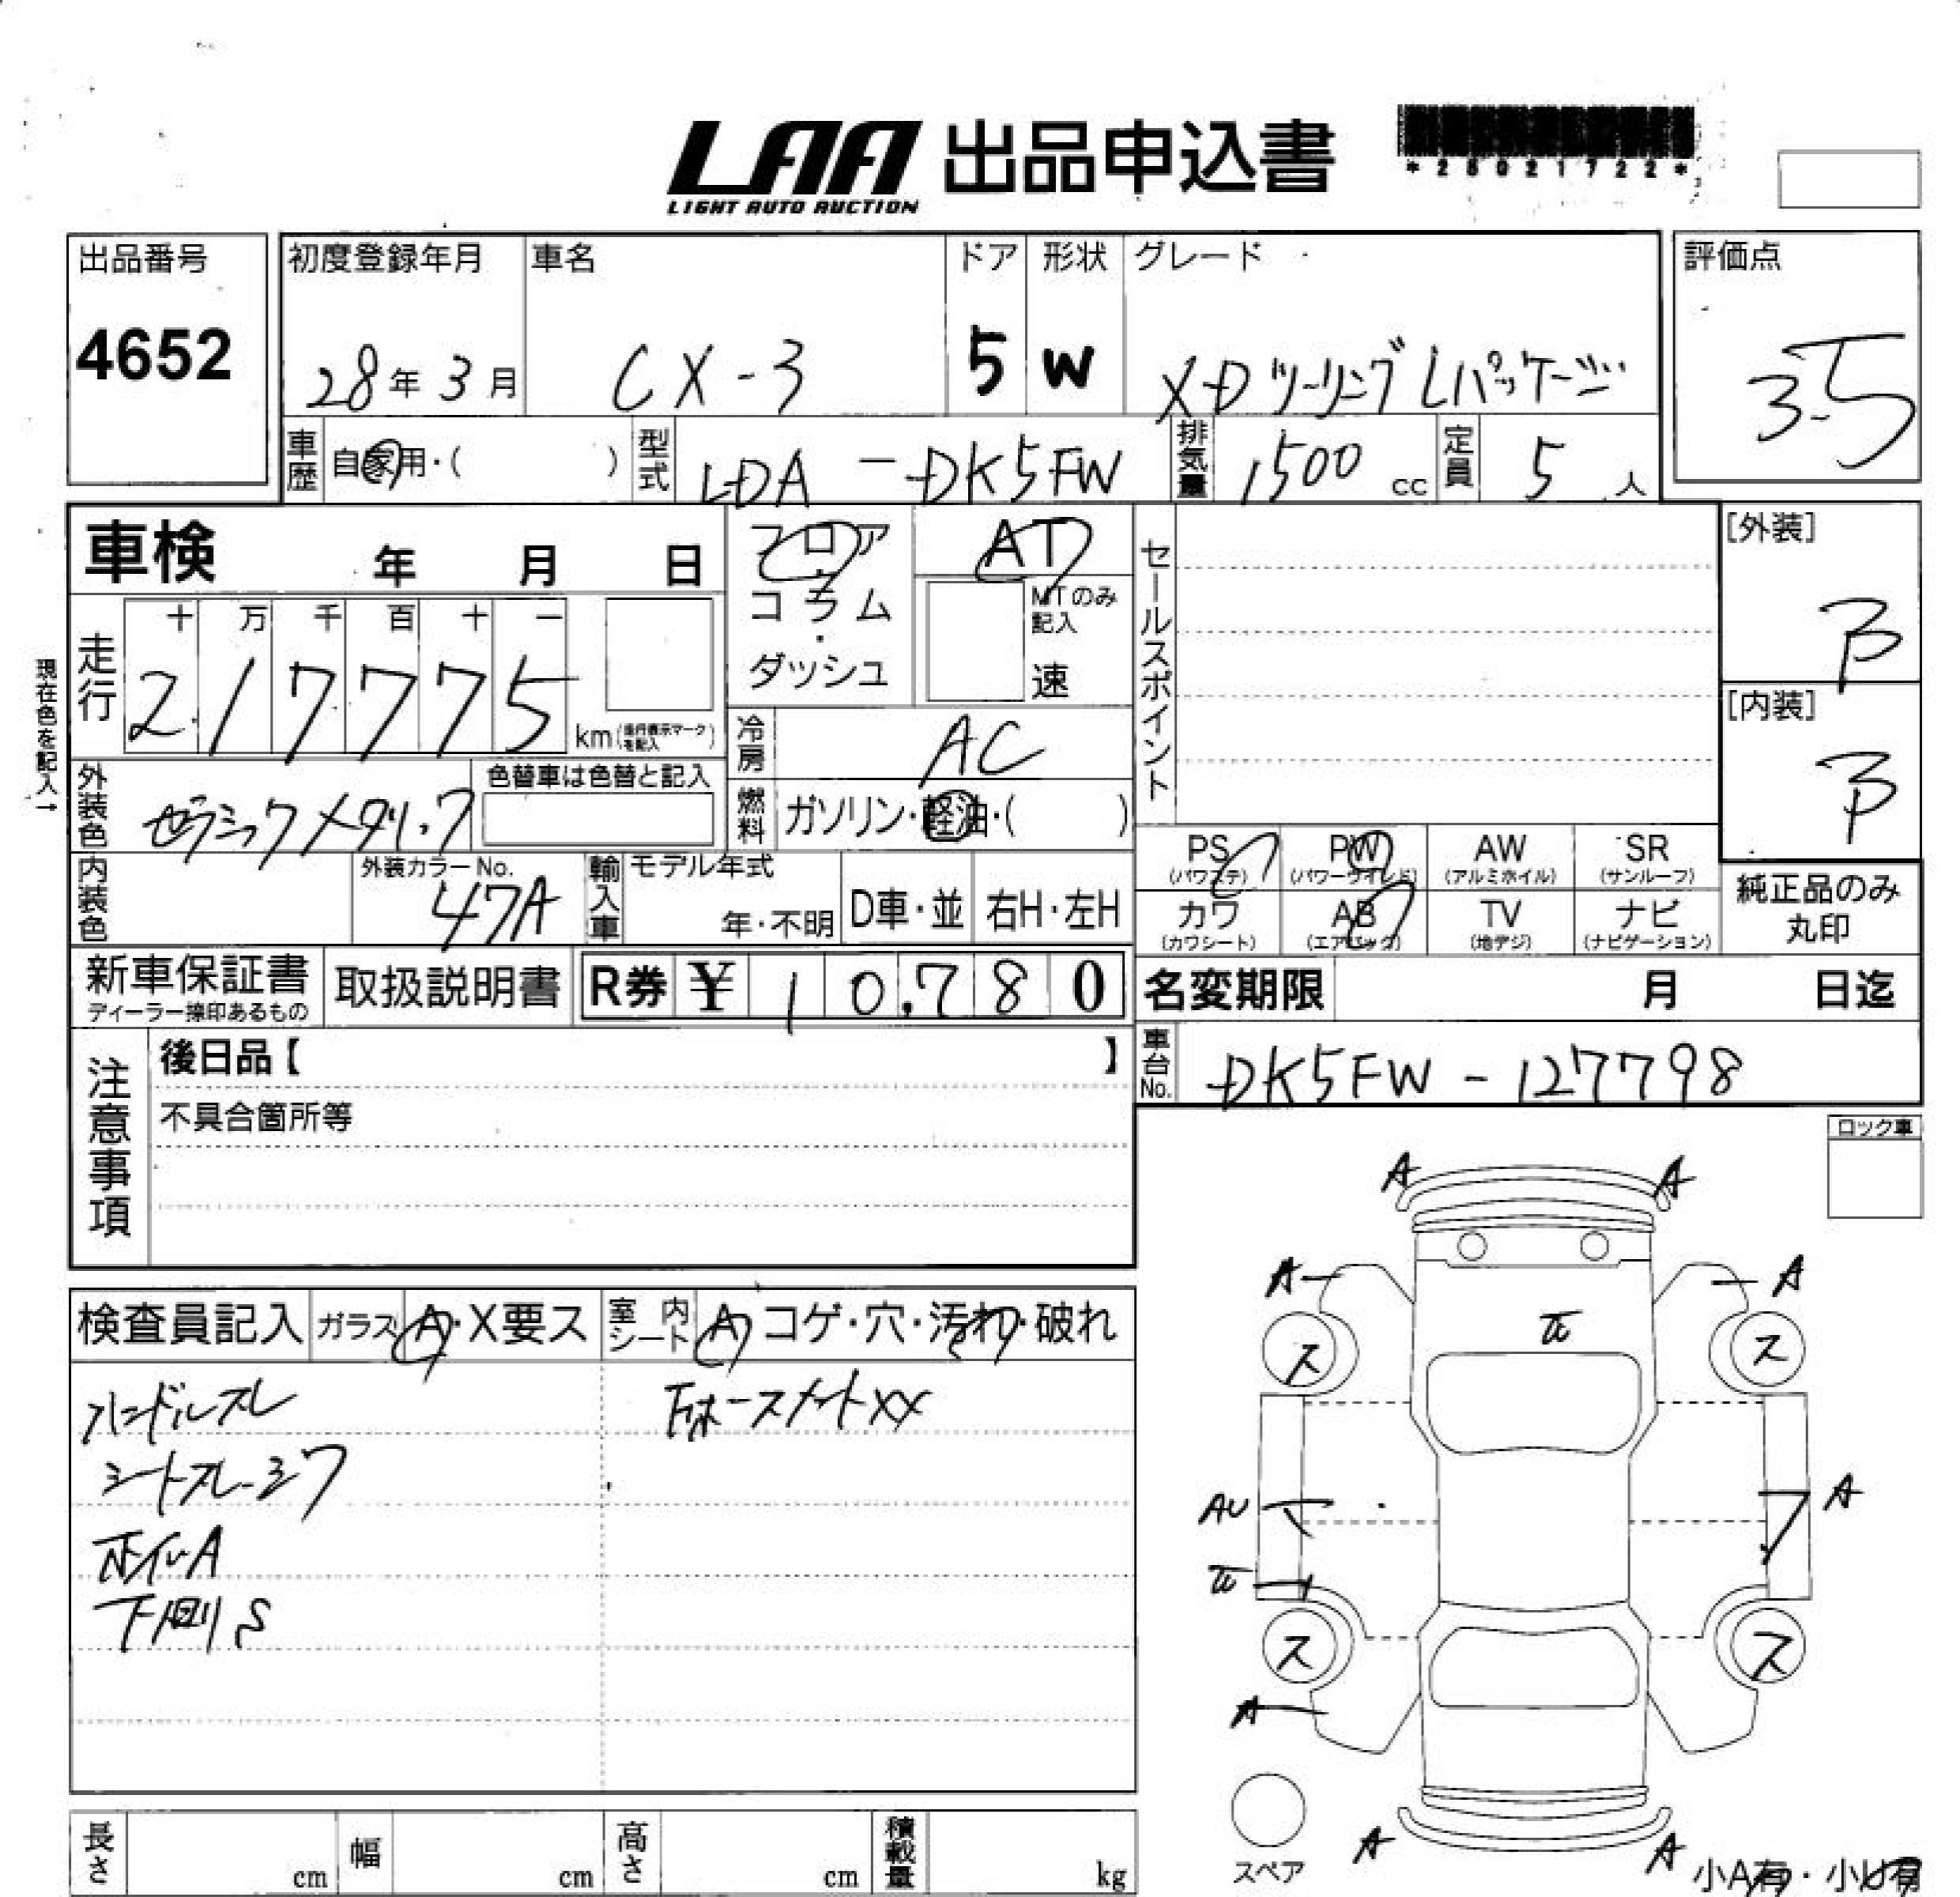 LAA 出品申込書
LIGHT AUTO AUCTION
*25021722*
出品番号
4652
初度登録年月
28年3月
車名
CX-3
ドア
5
形状
W
グレード
XDツーリングLパッケージ
評価点
3.5
車歴
自家用・( )
型式
LDA-DK5FW
排気量
1500 cc
定員
5人
車検 年 月 日
走行
十 万 千 百 十 一
217775 km(走行表示マークを記入)
現在色を記入→
外装色
セラミックメタリック
色替車は色替と記入
内装色
外装カラーNo.
47A
フロア・コラム・ダッシュ
AT
MTのみ記入
速
冷房
AC
燃料
ガソリン・軽油・( )
輸入車
モデル年式
年・不明
D車・並
右H・左H
セールスポイント
[外装]
B
[内装]
B
PS (パワステ)
PW (パワーウインド)
AW (アルミホイル)
SR (サンルーフ)
カワ (カワシート)
AB (エアバック)
TV (地デジ)
ナビ (ナビゲーション)
純正品のみ丸印
新車保証書
ディーラー捺印あるもの
取扱説明書
R券 ¥ 10,780
名変期限 月 日迄
車台No.
DK5FW-127798
注意事項
後日品【 】
不具合箇所等
ロック車
検査員記入
ガラス A・X要ス
室内シート A コゲ・穴・汚れ・破れ
ハンドルスレ
シートスレ・シワ
ホイルA
下側S
A A
A A
ス ス
AU A
ス ス
A
A A
スペア
小A有・小U有
長さ cm
幅 cm
高さ cm
積載量 kg